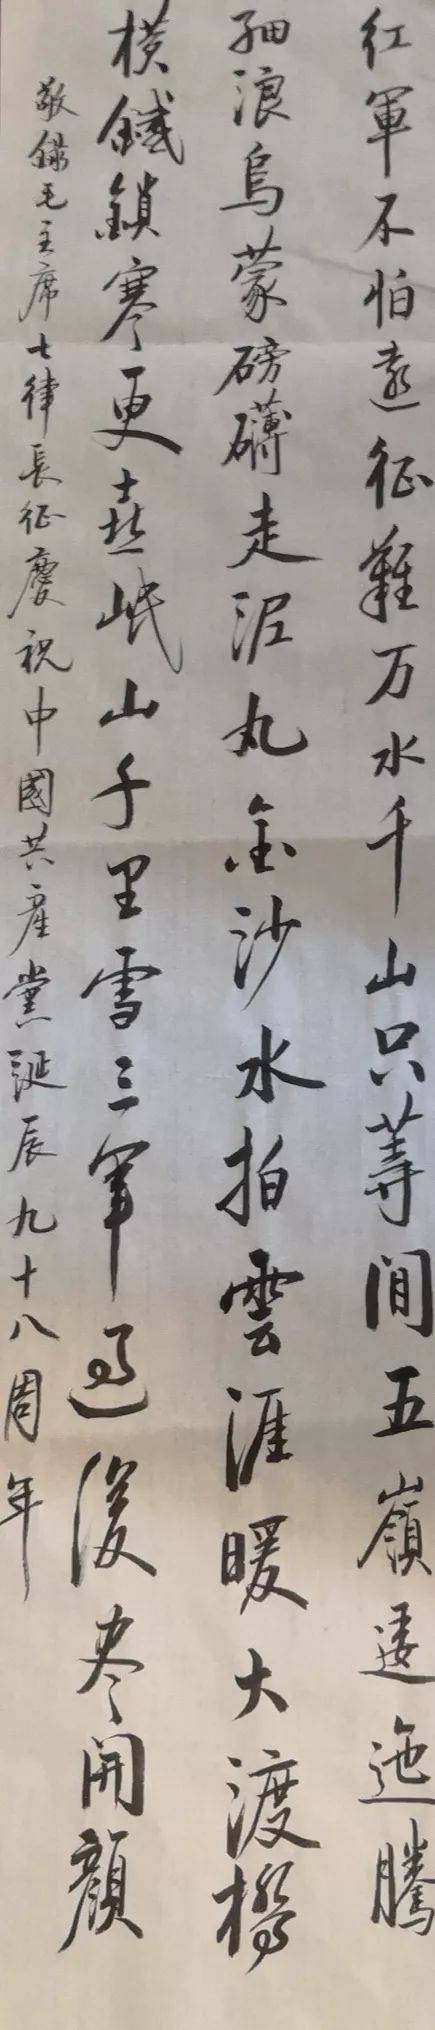 红軍不怕遠征難万水千山只等間五嶺逶迤騰
細浪烏蒙磅礴走泥丸金沙水拍雲涯暖大渡橋
横鐵鎖寒更喜岷山千里雪三軍過後尽開顔
敬錄毛主席七律長征慶祝中國共産黨誕辰九十八周年